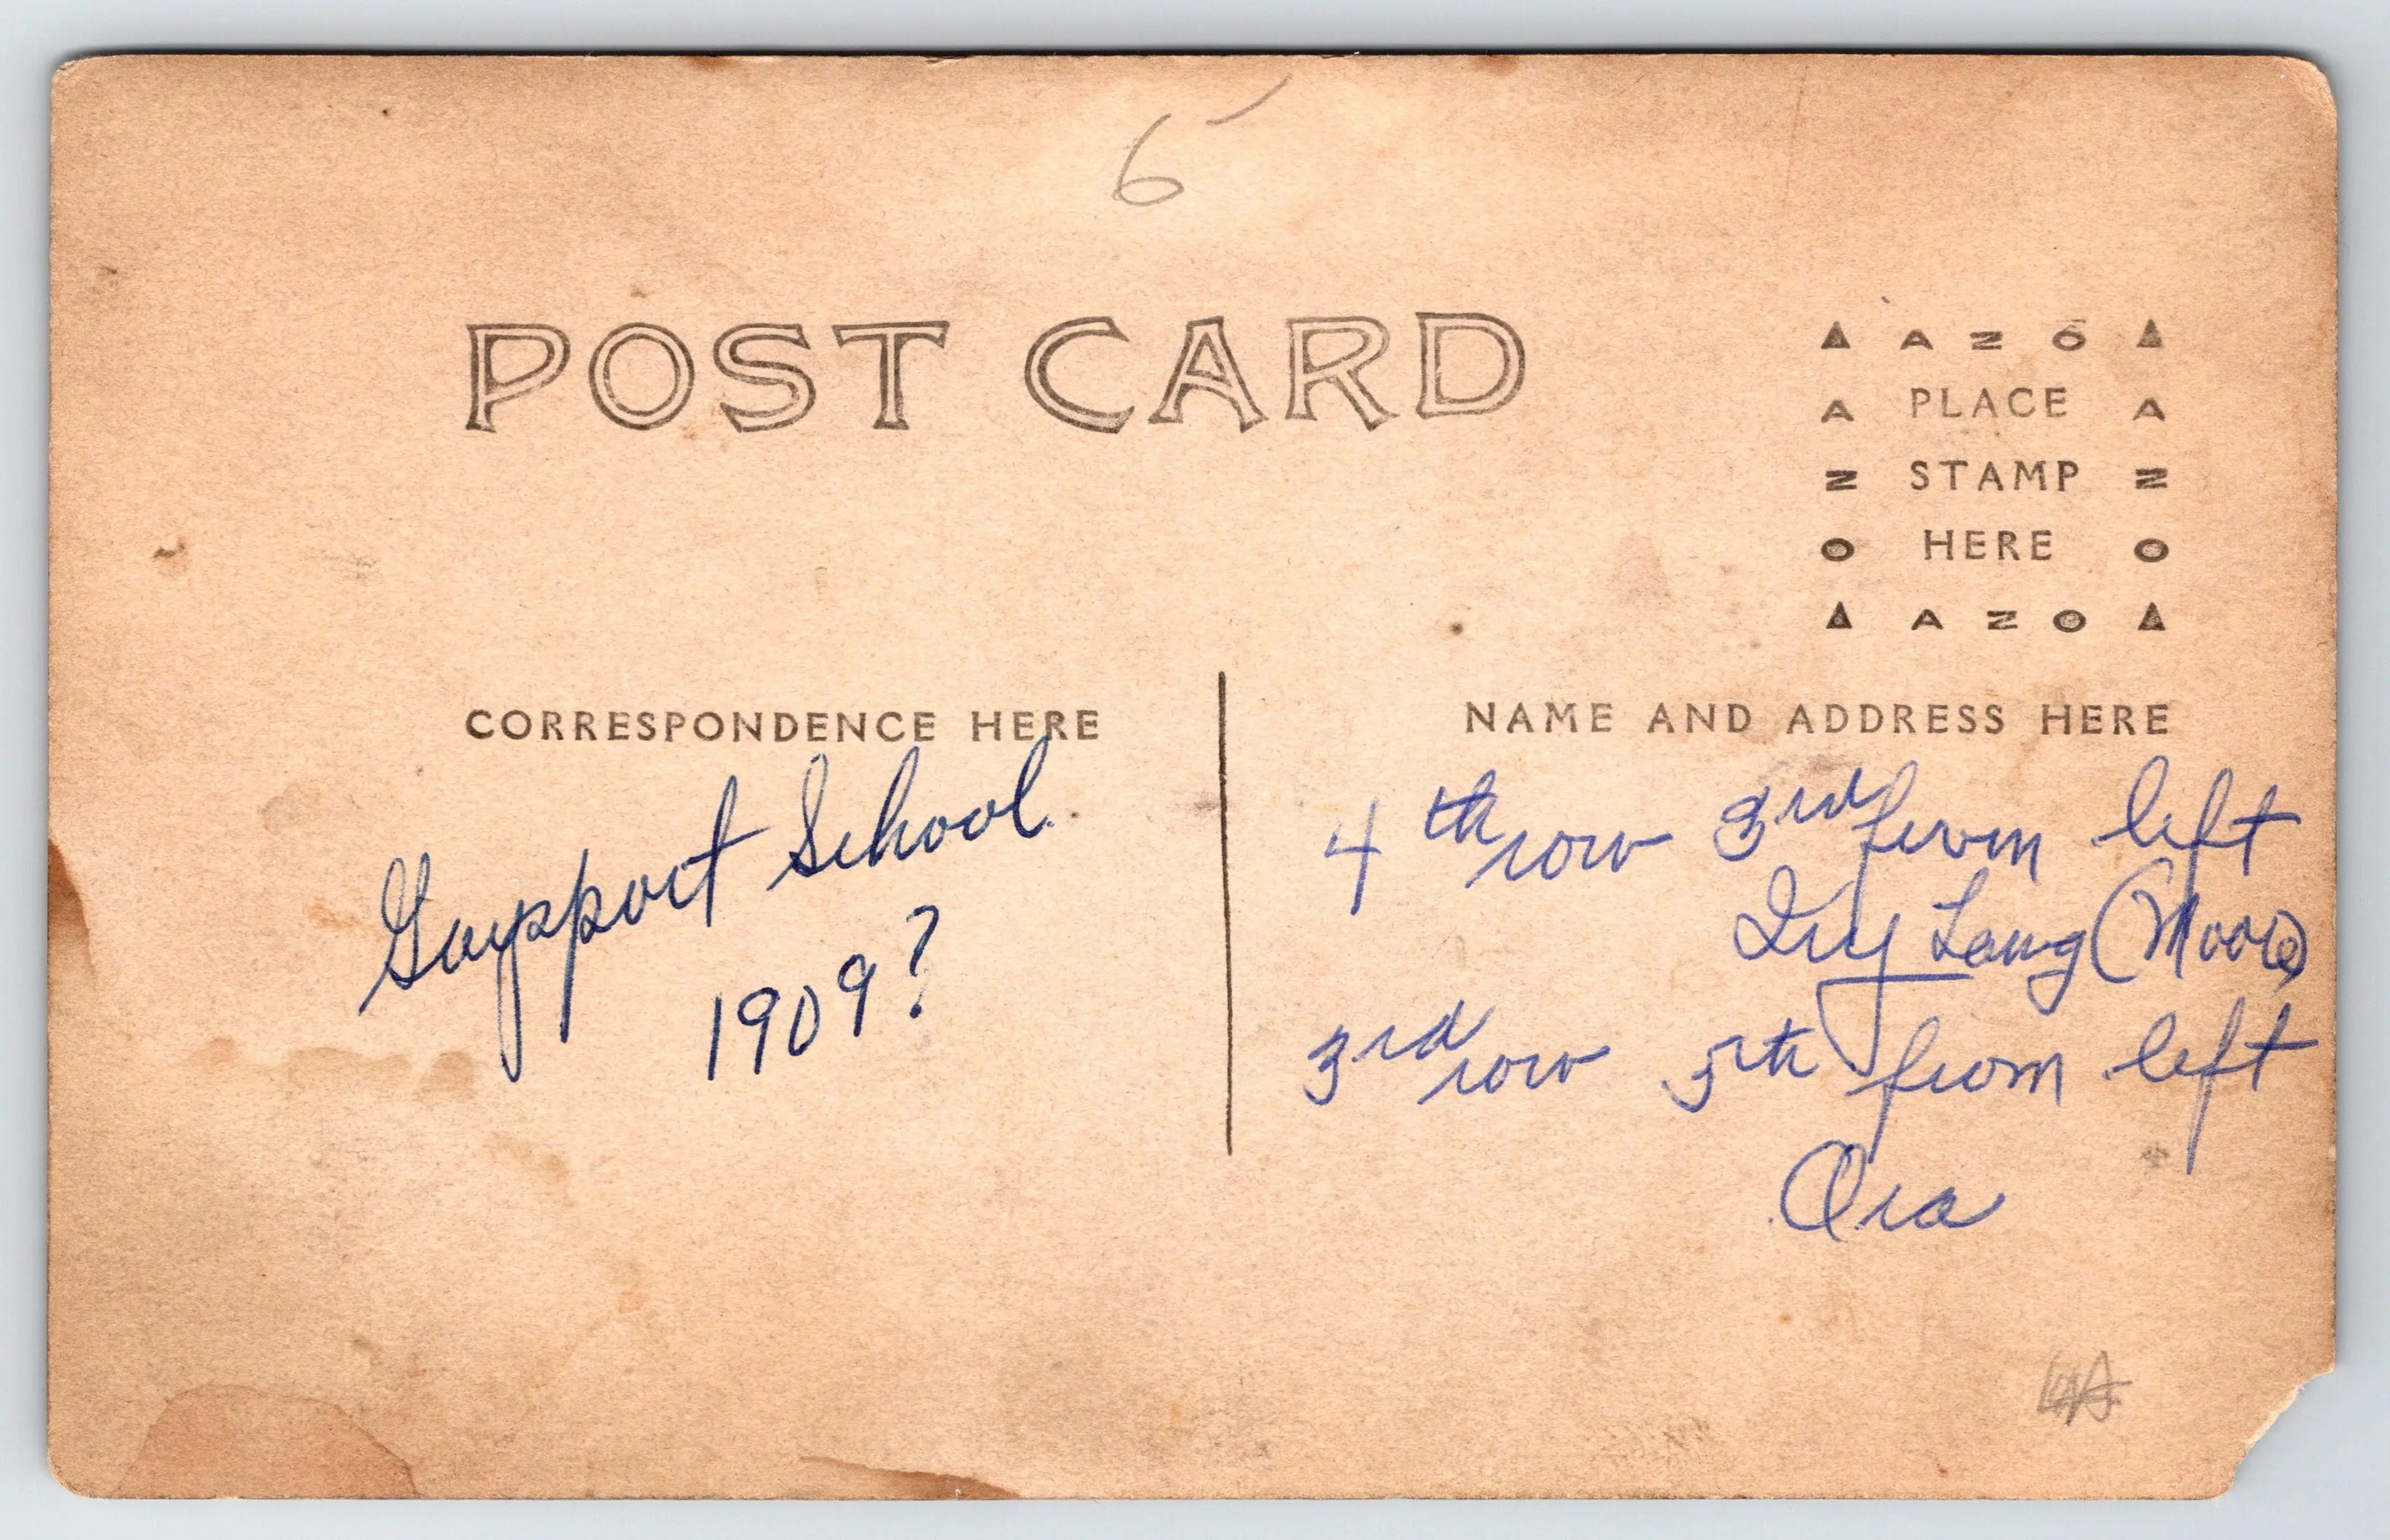 6
POST CARD
▲ A Z O ▲
A PLACE A
Z STAMP Z
O HERE O
▲ A Z O ▲
CORRESPONDENCE HERE
Gaysport School
1909?
NAME AND ADDRESS HERE
4th row 3rd from left
Ivy Lang (Moore)
3rd row 5th from left
Ora